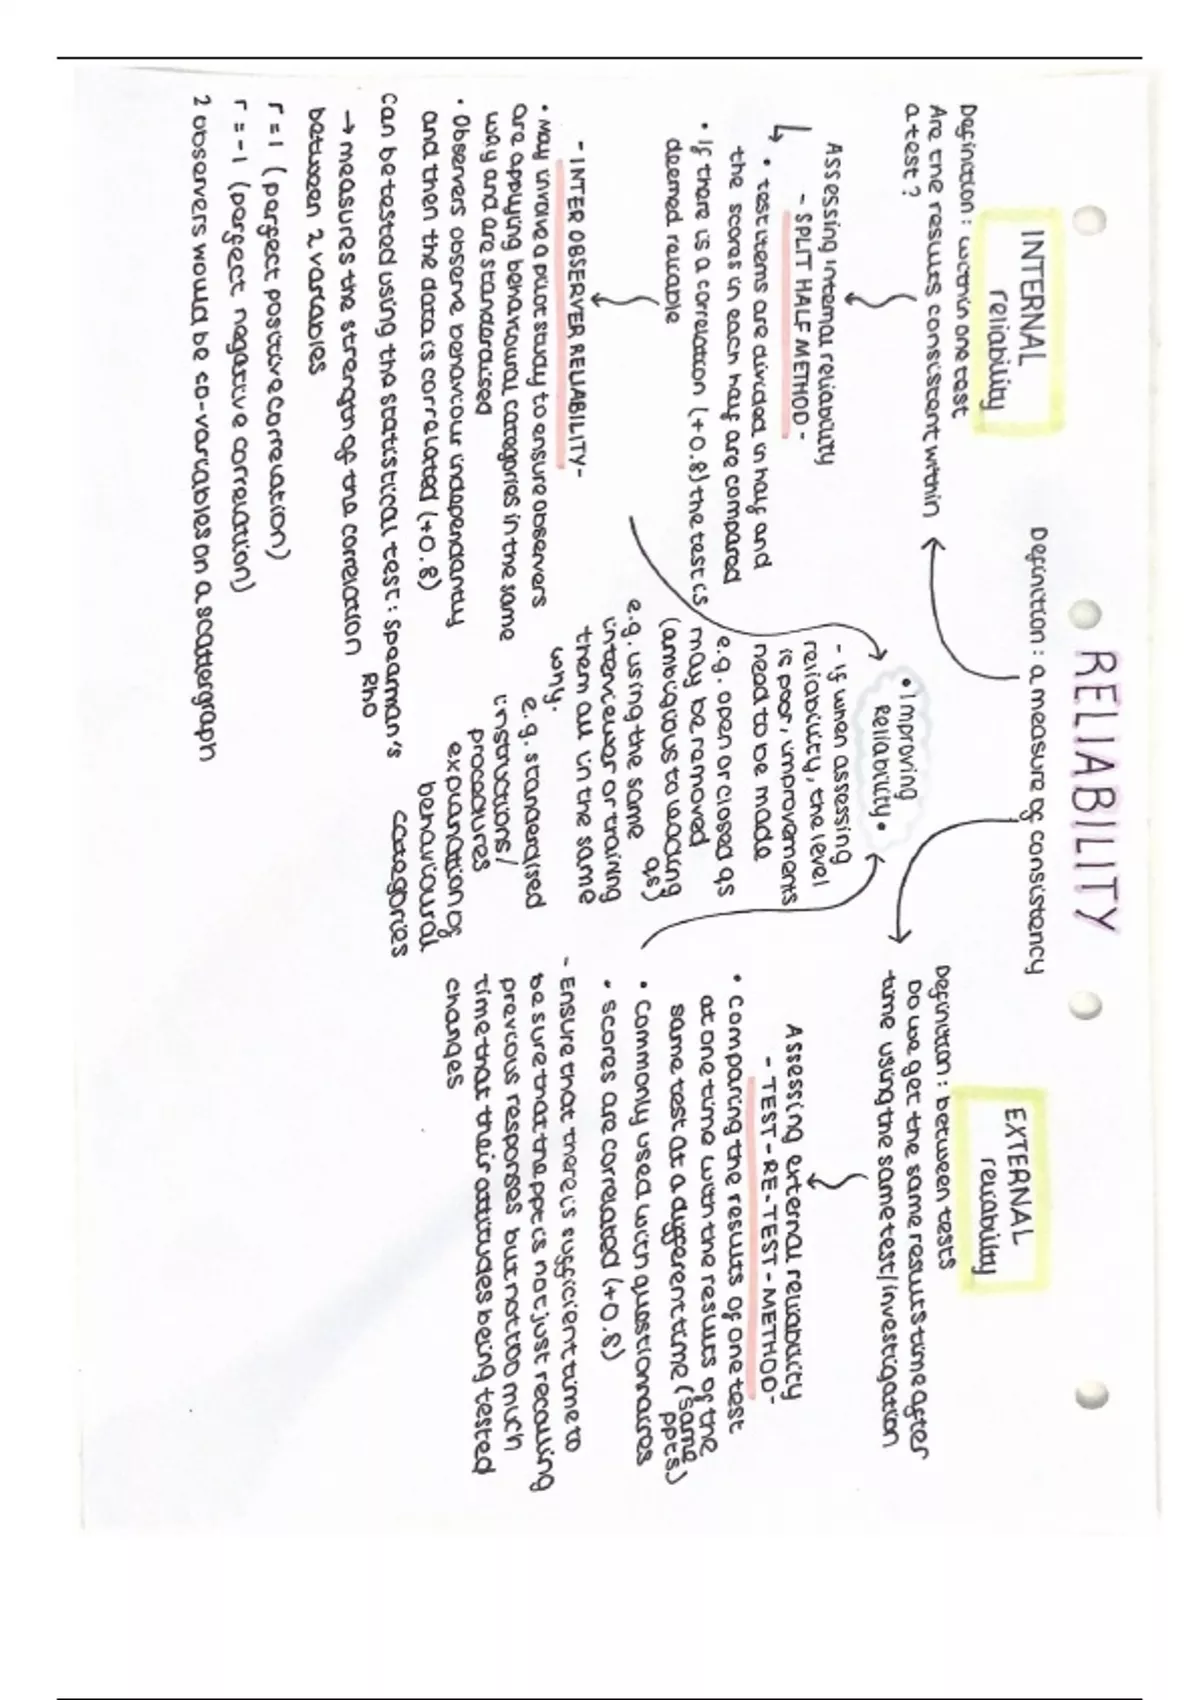 RELIABILITY
Definition: a measure of consistency
INTERNAL
reliability
Definition: within one test
Are the results consistent within
a test?
Assessing internal reliability
- SPLIT HALF METHOD -
• test items are divided in half and
the scores in each half are compared
• If there is a correlation (+0.8) the test is
deemed reliable
- INTER OBSERVER RELIABILITY-
• May involve a pilot study to ensure observers
are applying behavioural categories in the same
way and are standardised
• Observers observe behaviour independantly
and then the data is correlated (+0.8)
Can be tested using the statistical test: Spearman's
Rho
→ measures the strength of the correlation
between 2 variables
r=1 (perfect positive correlation)
r=-1 (perfect negative correlation)
2 observers would be co-variables on a scattergraph
• Improving
Reliability •
- If when assessing
reliability, the level
is poor, improvements
need to be made
e.g. open or closed qs
may be removed
(ambiguous to leading
qs)
e.g. using the same
interviewer or training
them all in the same
way.
e.g. standardised
instructions/
procedures
explanation of
behavioural
categories
EXTERNAL
reliability
Definition: between tests
Do we get the same results time after
time using the same test/investigation
Assessing external reliability
- TEST-RE-TEST-METHOD-
• Comparing the results of one test
at one time with the results of the
same test at a different time (same
ppts)
• Commonly used with questionnaires
• scores are correlated (+0.8)
- Ensure that there is sufficient time to
be sure that the ppt is not just recalling
previous responses but not too much
time that their attitudes being tested
changes